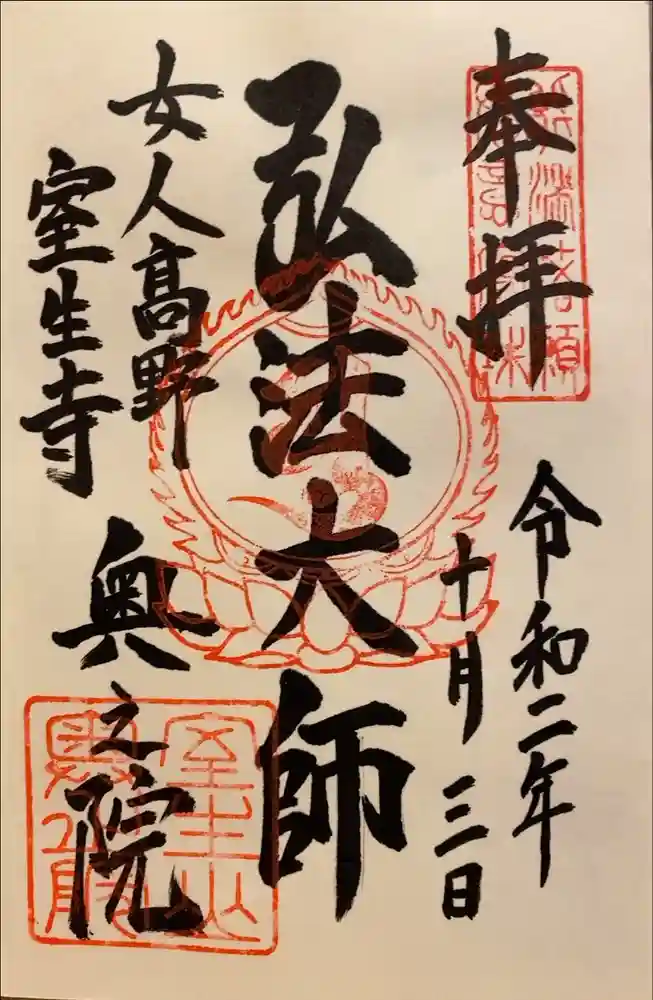 奉拝
令和二年
十月三日
弘法大師
女人高野
室生寺
奥之院
室生山
奥之院